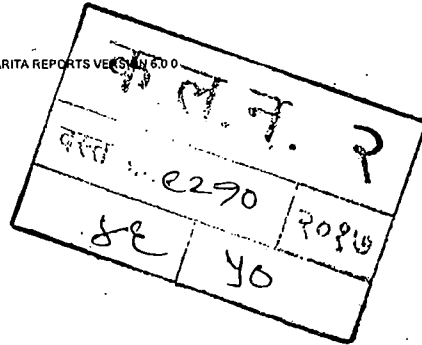 ARITA REPORTS VERSION 6.0 0
क ल. न. २
दस्त
९२९० २०१७
४९ ५०